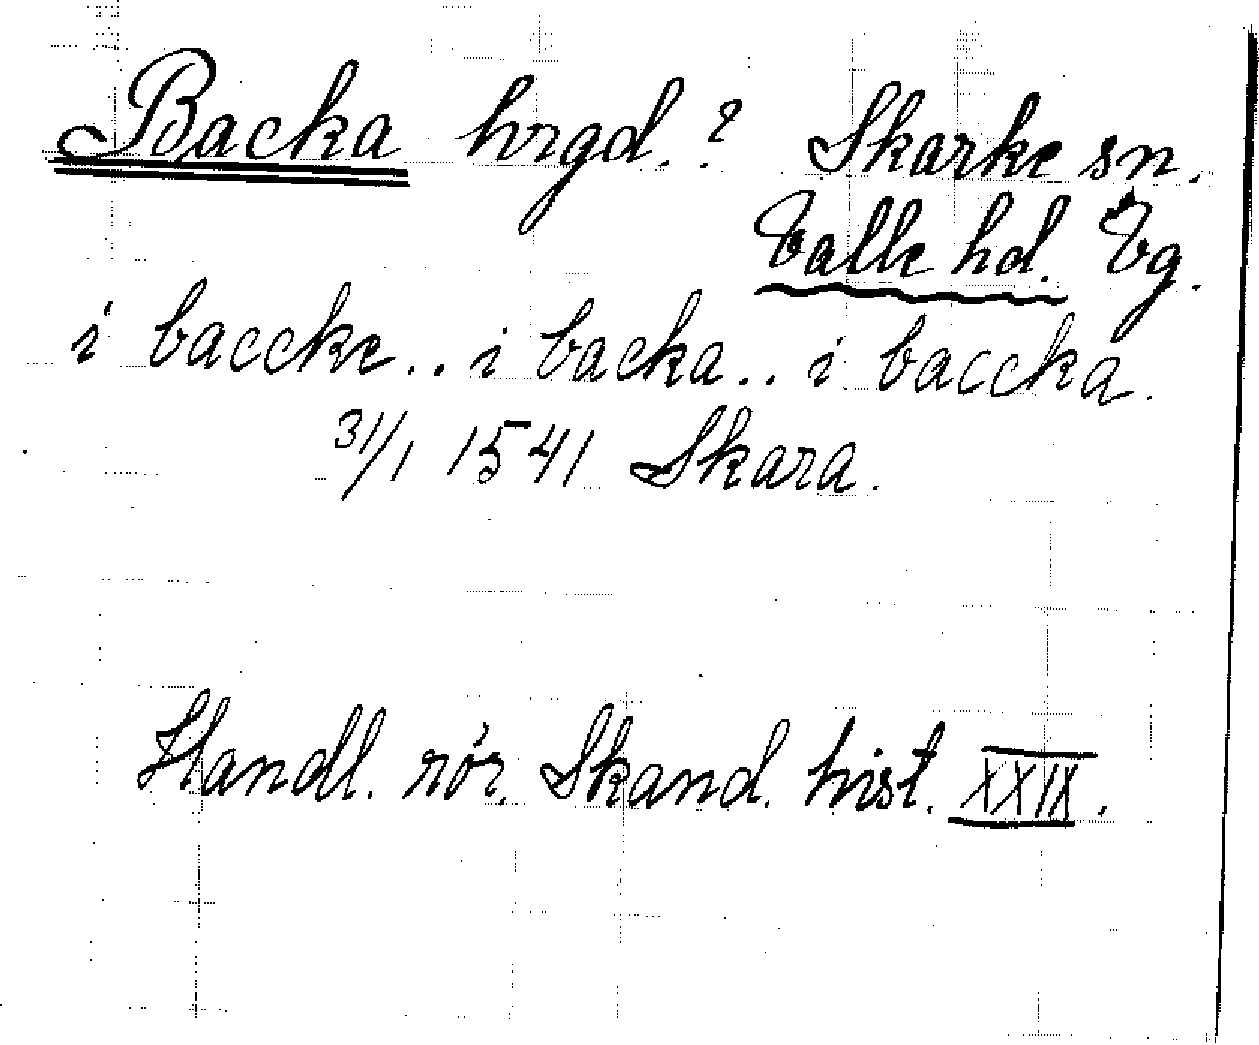 Backa hrgd.? Skarke sn.
Valle hd. Vg.
i baccke.. i backa.. i baccka.
31/1 1541 Skara.
Handl. rör. Skand. hist. XXIX.